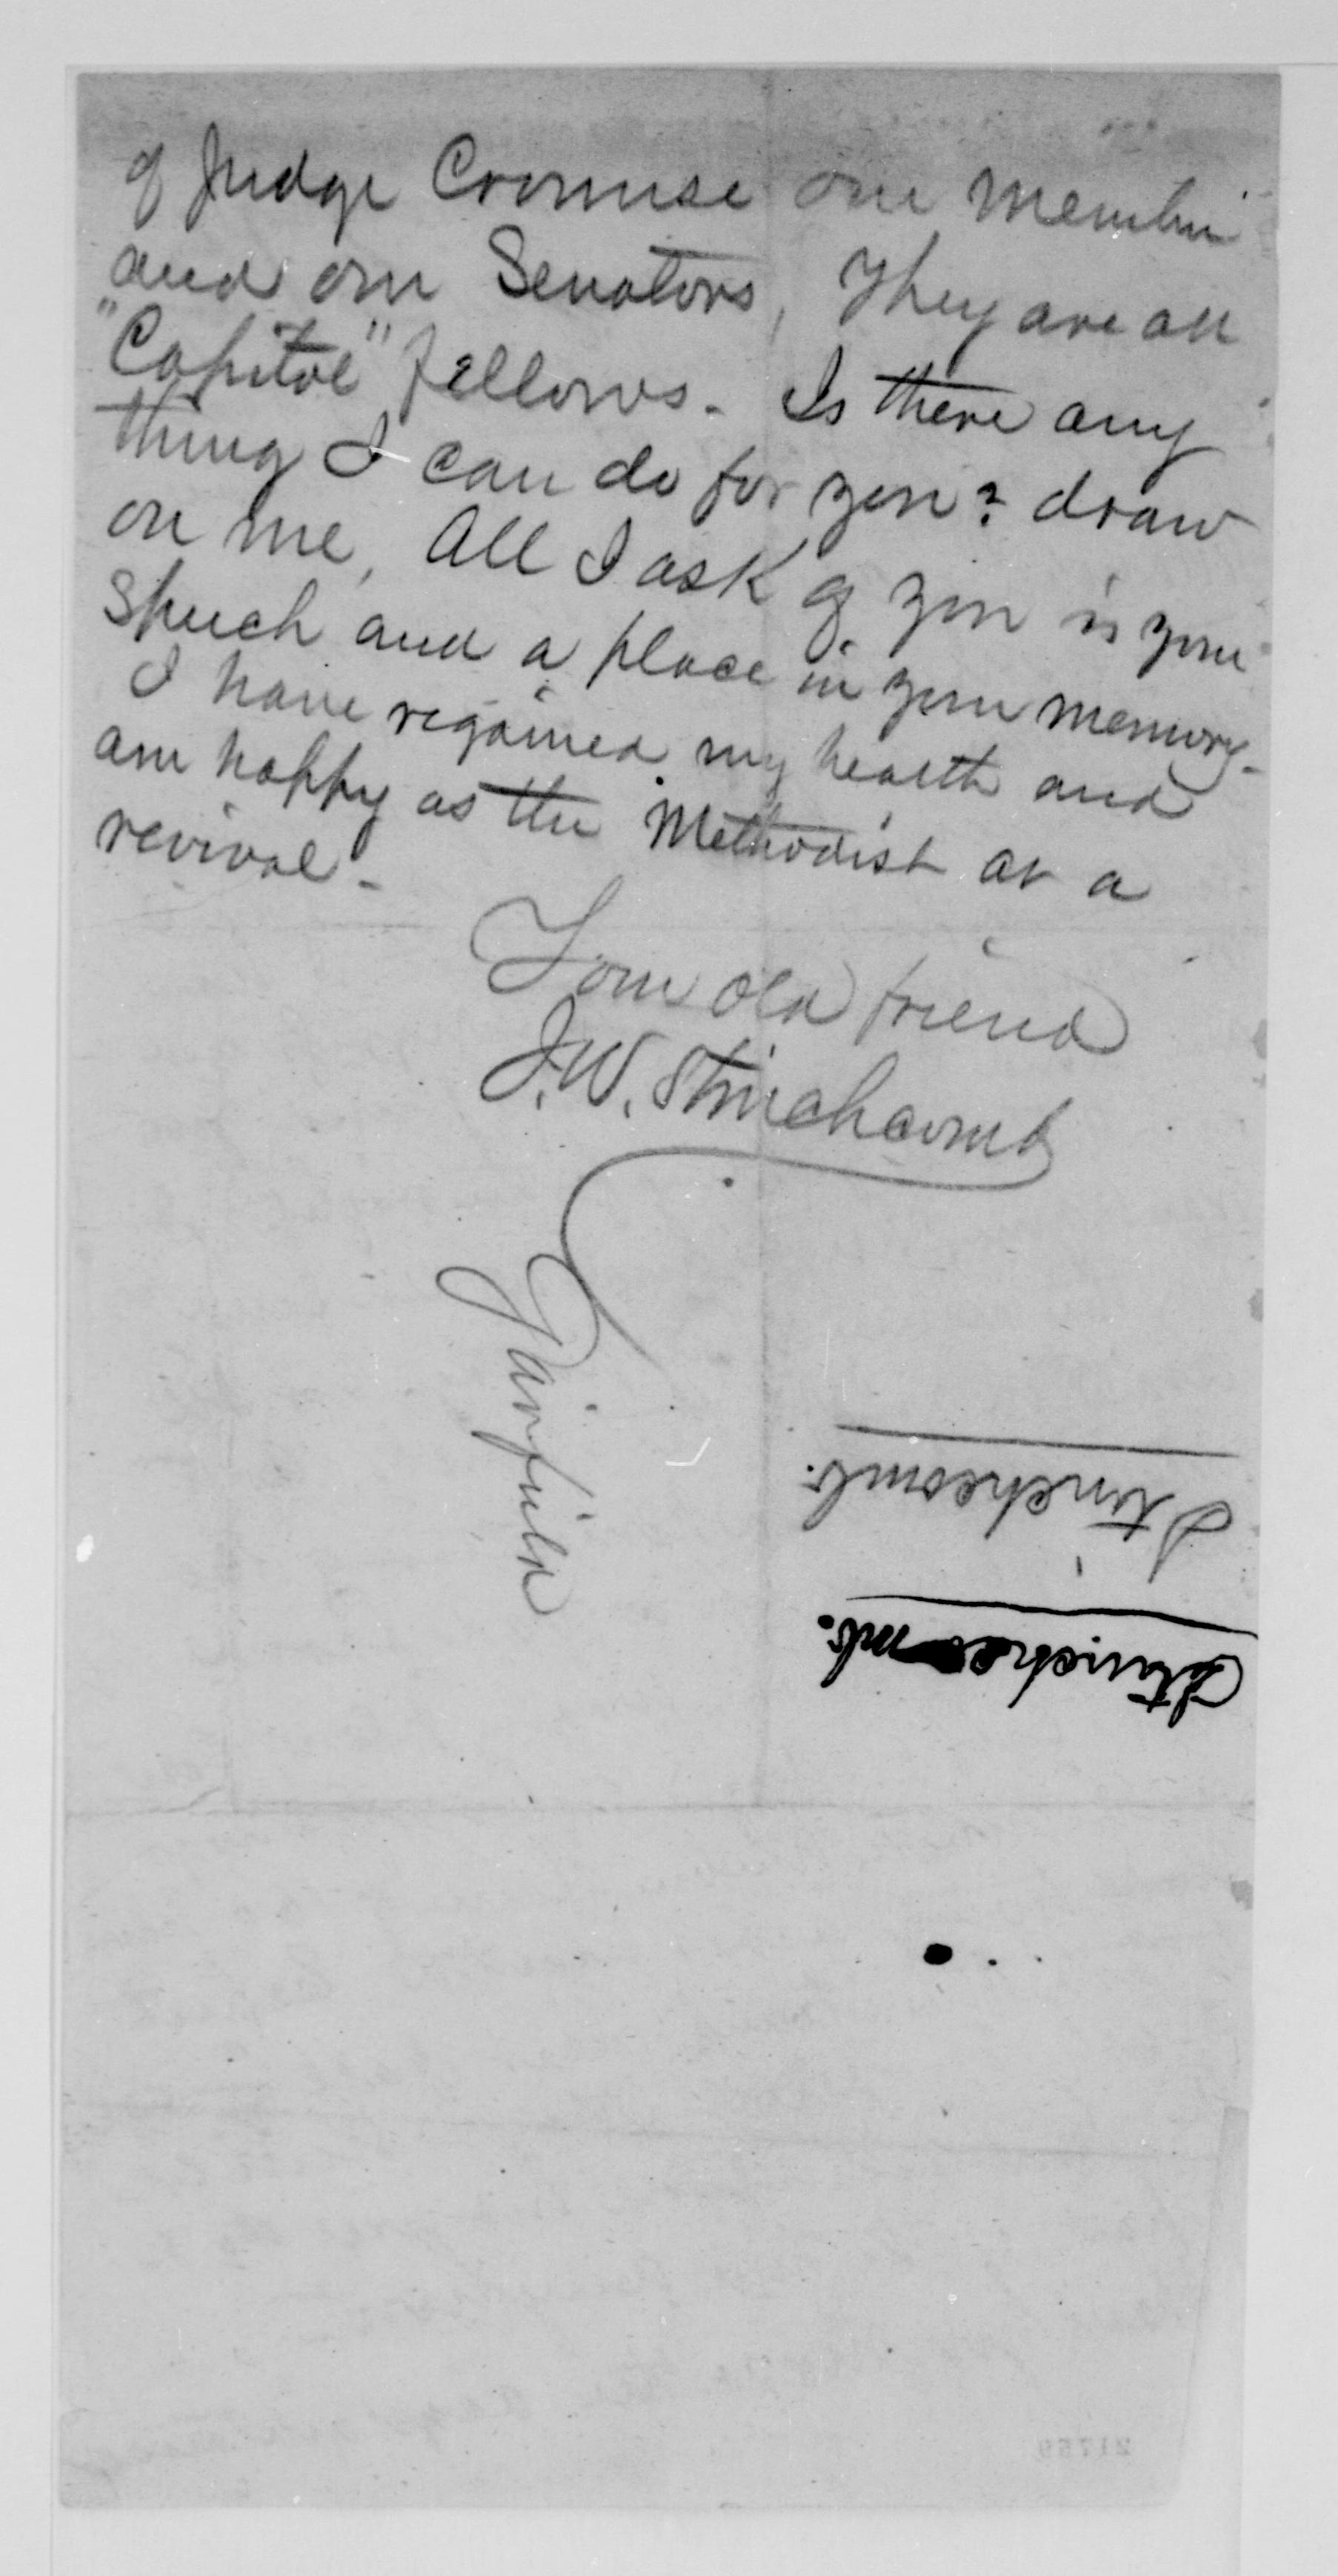 of Judge Crounse our member
and our Senators, They are all
"Capitol" fellows. Is there any
thing I can do for you? draw
on me, All I ask of you is your
speech and a place in your memory.
I have regained my health and
am happy as the Methodist at a
revival.
Your old friend
J. W. Stinchcomb
Garfield
Stinchcomb.
Stinchcomb.
21759